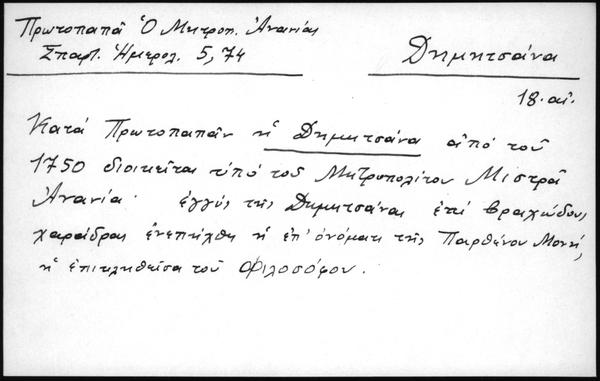 Πρωτοπαπᾶ Ὁ Μητροπ. Ἀνανίας
Σπαρτ. Ἡμερολ. 5, 74
Δημητσάνα
18. αἰ.
Κατά Πρωτοπαπᾶν ἡ Δημητσάνα ἀπό τοῦ
1750 διοικεῖται ὑπό τοῦ Μητροπολίτου Μιστρᾶ
Ἀνανία· ἐγγύς τῆς Δημητσάνας ἐπί βραχώδους
χαράδρας ἐνεπήχθη ἡ ἐπ' ὀνόματι τῆς Παρθένου Μονή,
ἡ ἐπικληθεῖσα τοῦ Φιλοσόφου.